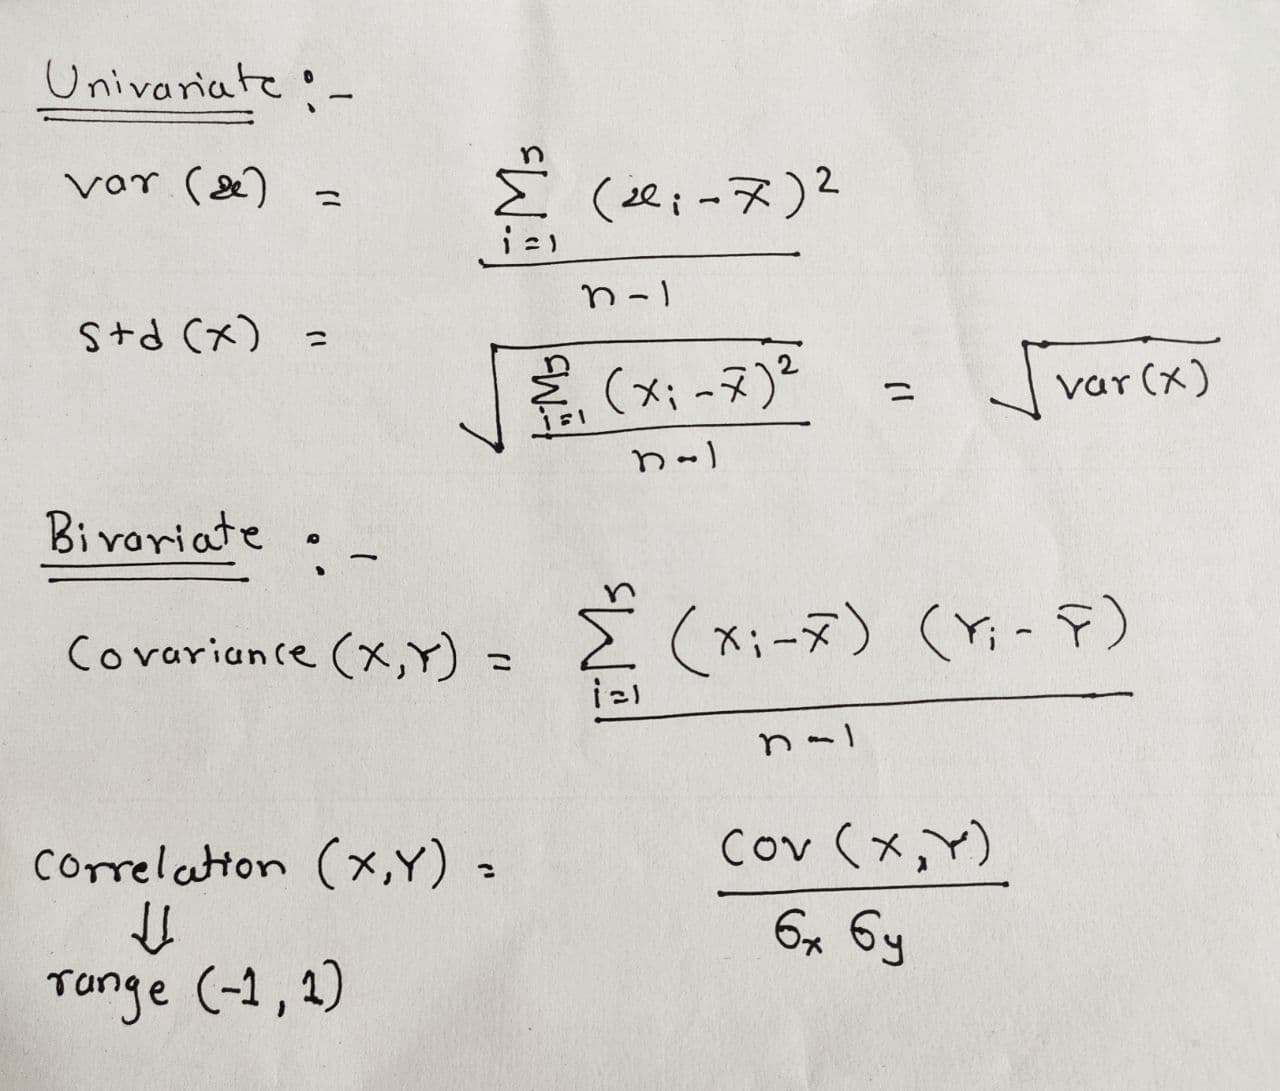 Univariate :-
var (x) = Σ_{i=1}^{n} (x_i - x̄)² / n-1
std (X) = √( Σ_{i=1}^{n} (x_i - x̄)² / n-1 ) = √var(X)
Bivariate :-
Covariance (X,Y) = Σ_{i=1}^{n} (x_i - x̄) (Y_i - Ȳ) / n-1
Correlation (X,Y) = Cov (X,Y) / σx σy
⇓
range (-1, 1)